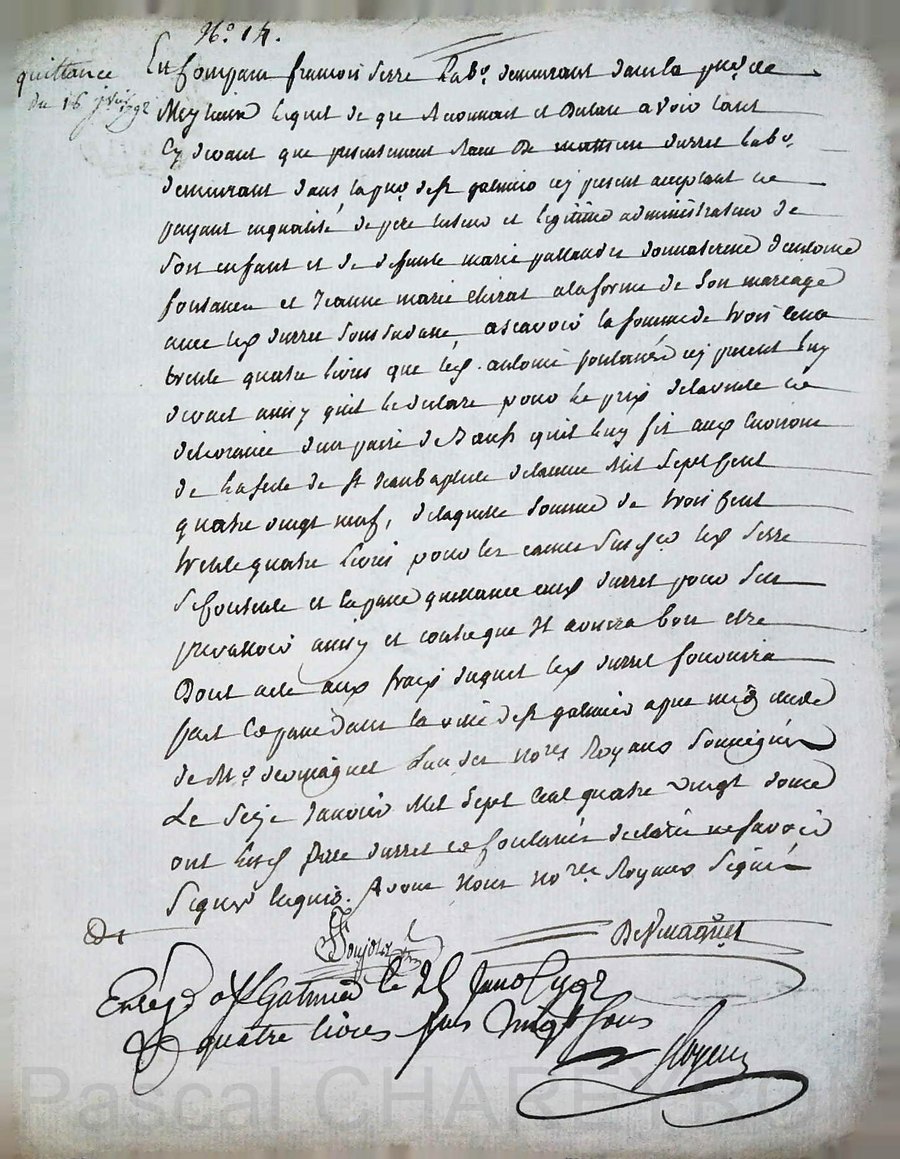 N.º 14.
quittance
du 16 jvier 1792
En Comparu francois serre Lab.r demeurant dans la
Lequel de gre Reconnait et Declare avoir tant
Cy devant que presentement Recu De mathieu durret Lab.r
demeurant dans la par.se de st galmier icy present acceptant et
payant en qualité de pere tuteur et legitime administrateur de
son enfant et de defunte marie donnataire d'antoine
fontaneu et Jeanne marie a la forme de son mariage
avec led. durret ascavoir la somme de trois cent
trente quatre livres que led. antoine icy present luy
devoit ainsy quil le declare pour le prix de la vente et
delivrance d'un paire de Bœufs quil luy fit aux environs
de La fete de st Jean baptiste de lannee Mil Sept Cent
quatre vingt neuf, de laquelle somme de trois Cent
trente quatre livres pour les causes Led. Serre
se Contente et en passe quittance aud. durret pour s'en
prevalloir ainsy et contre que Il avisera bon etre
Dont acte aux frais duquel led. durret fournira
fait Et passé dans la ville de st galmier apres midy etude
de M.e denmaquet L'un des no.res Royaux Soussignés
Le Seize Janvier Mil Sept Cent quatre vingt douze
ont Lesd. serre durret et declaré ne savoir
Signer Enquis. Avons Nous no.res Royaux Signés
Denmaquet
Enreg.é a St Galmier le 25 Janv. 1792
quatre livres Vingt Sous
Pascal CHAREYRON